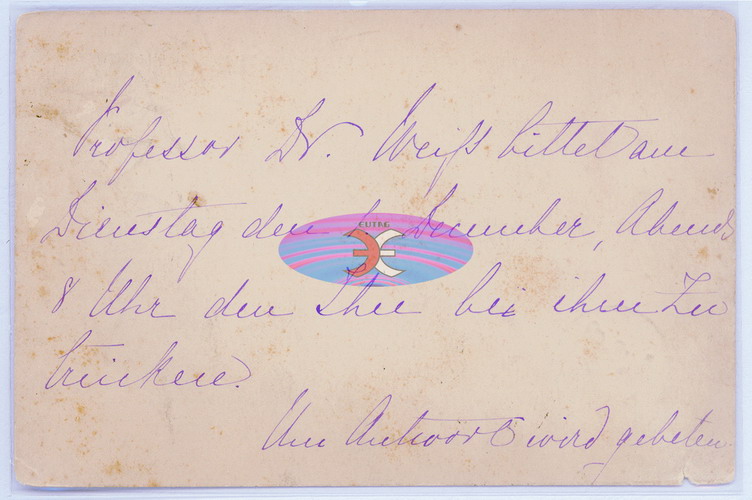 Professor Dr. Weiß bittet am
Dienstag den 1. December, Abends
8 Uhr den Thee bei ihm zu
trinken.
Um Antwort wird gebeten
EUTAG